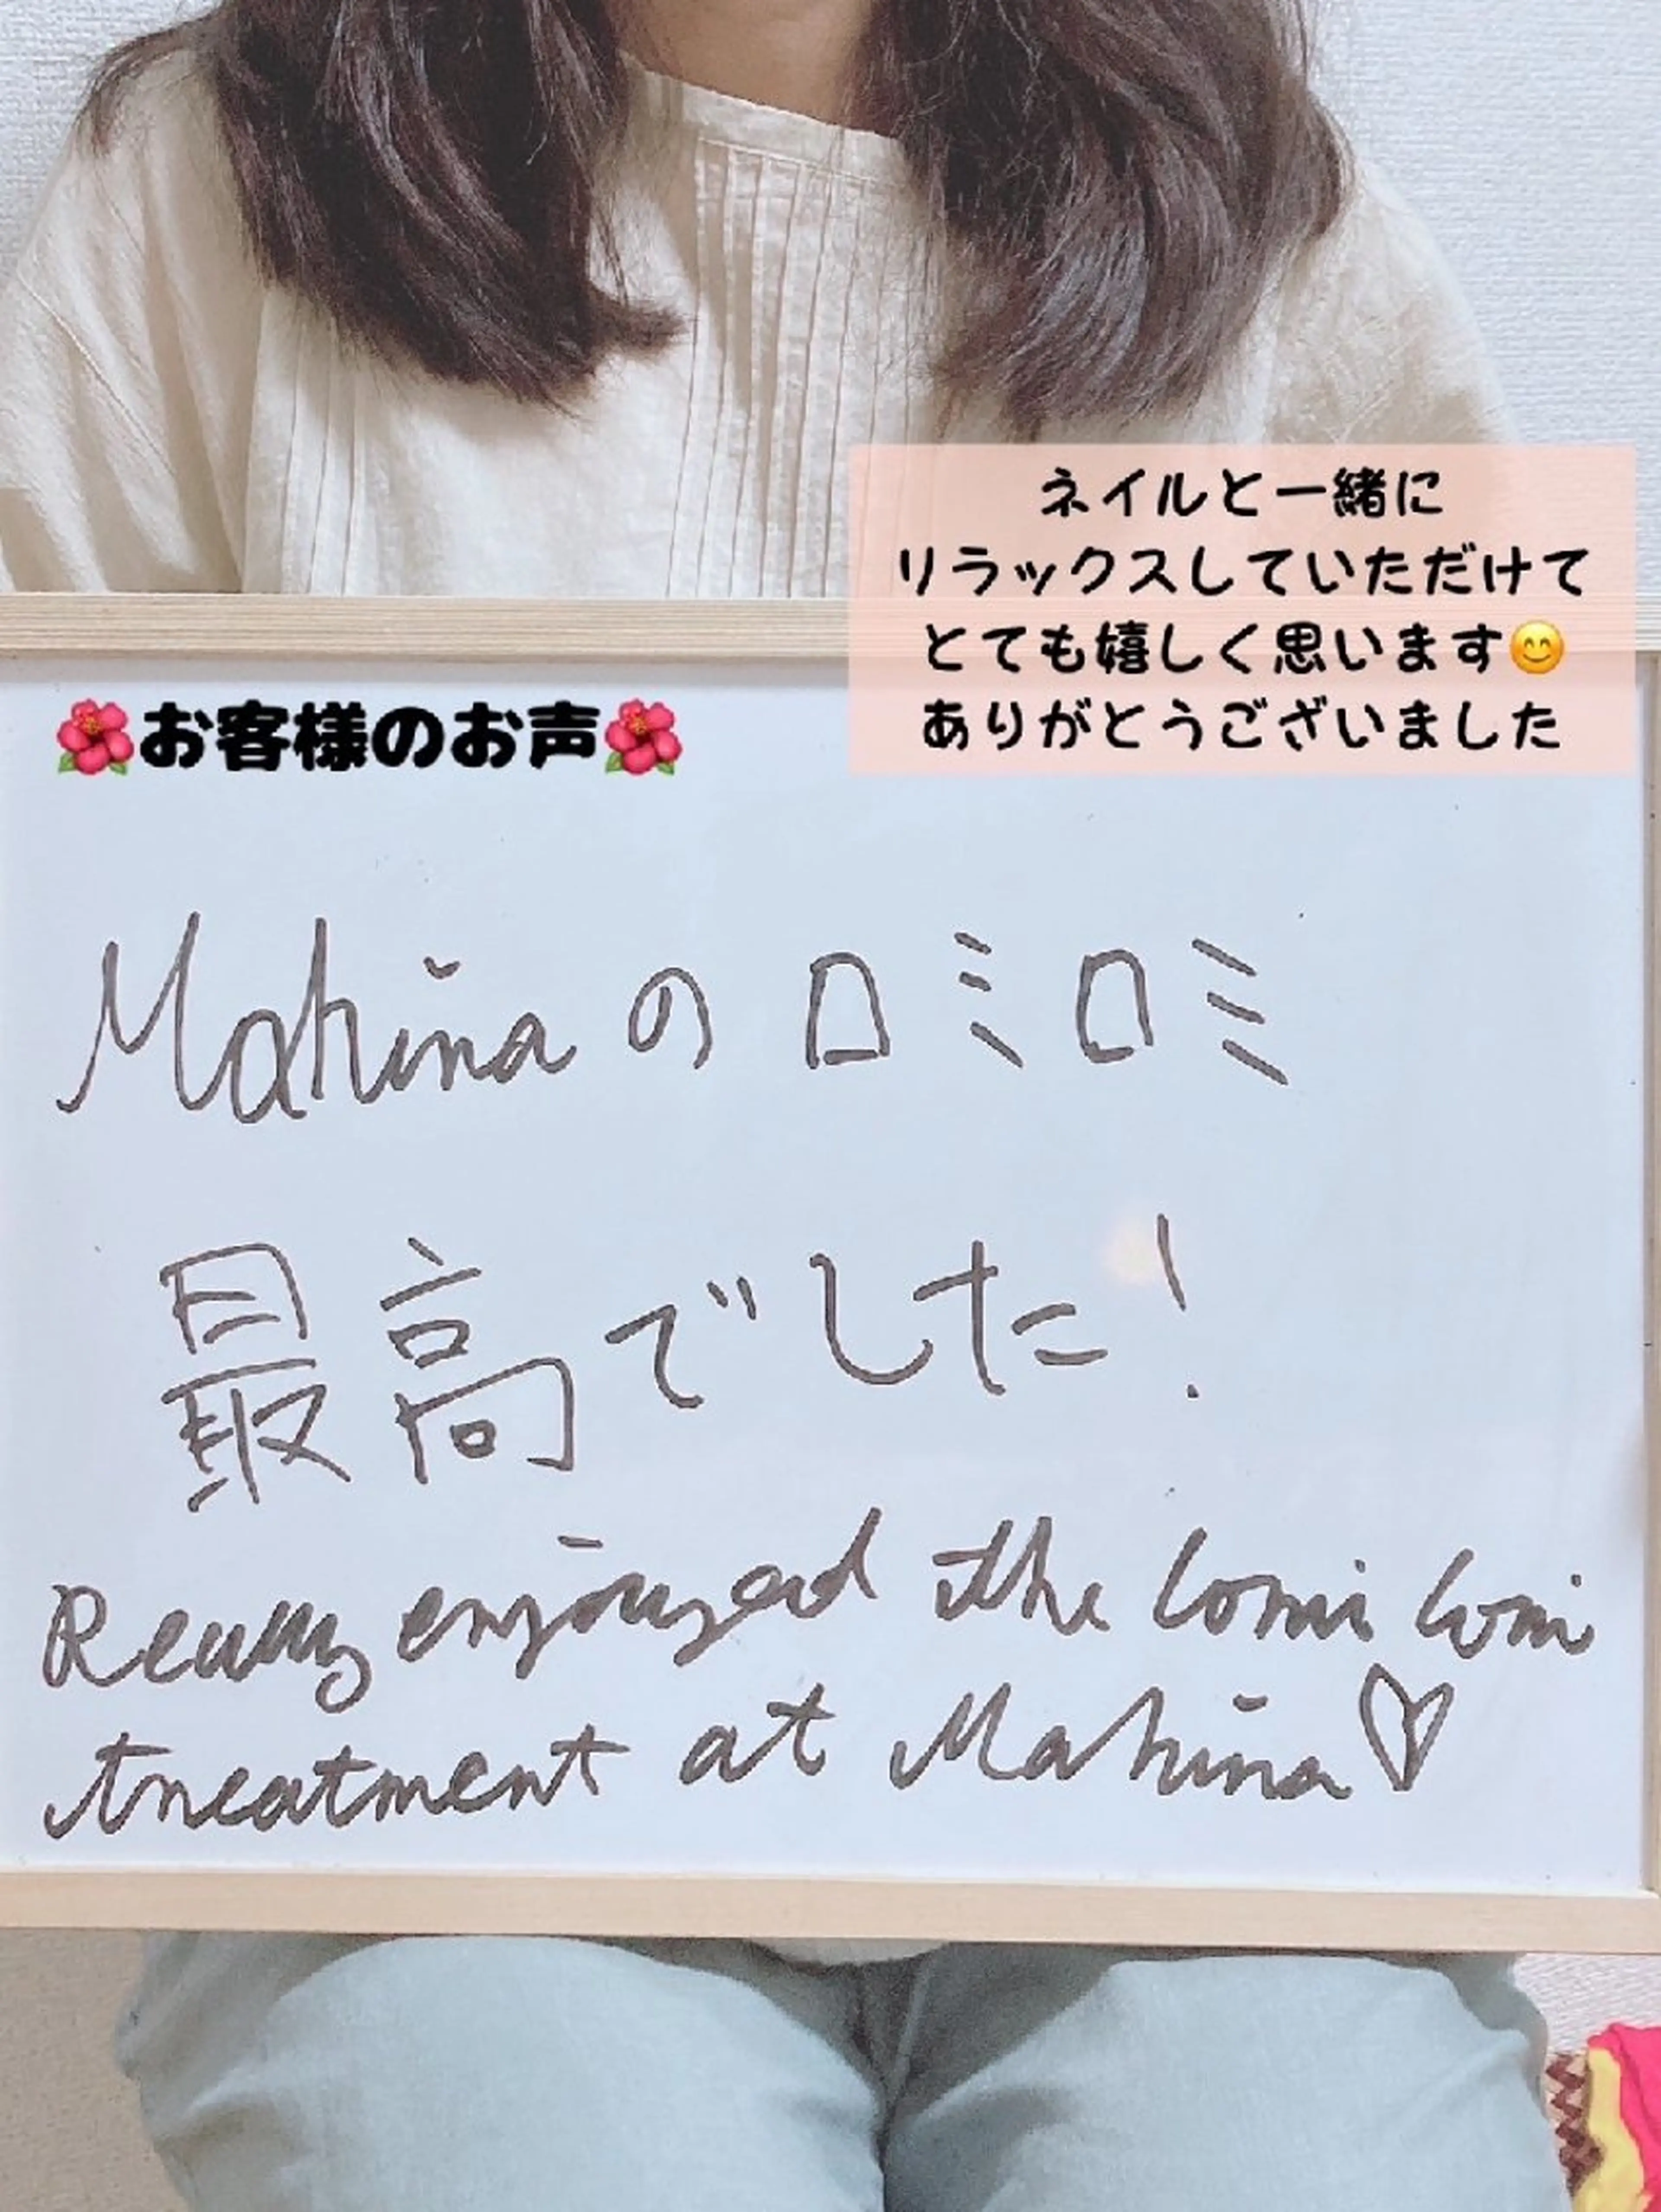 ネイルと一緒に
リラックスしていただけて
とても嬉しく思います😊
ありがとうございました
🌺お客様のお声🌺
Mahinaの ロミロミ
最高でした!
Really enjoyed the lomi lomi
treatment at Mahina♡